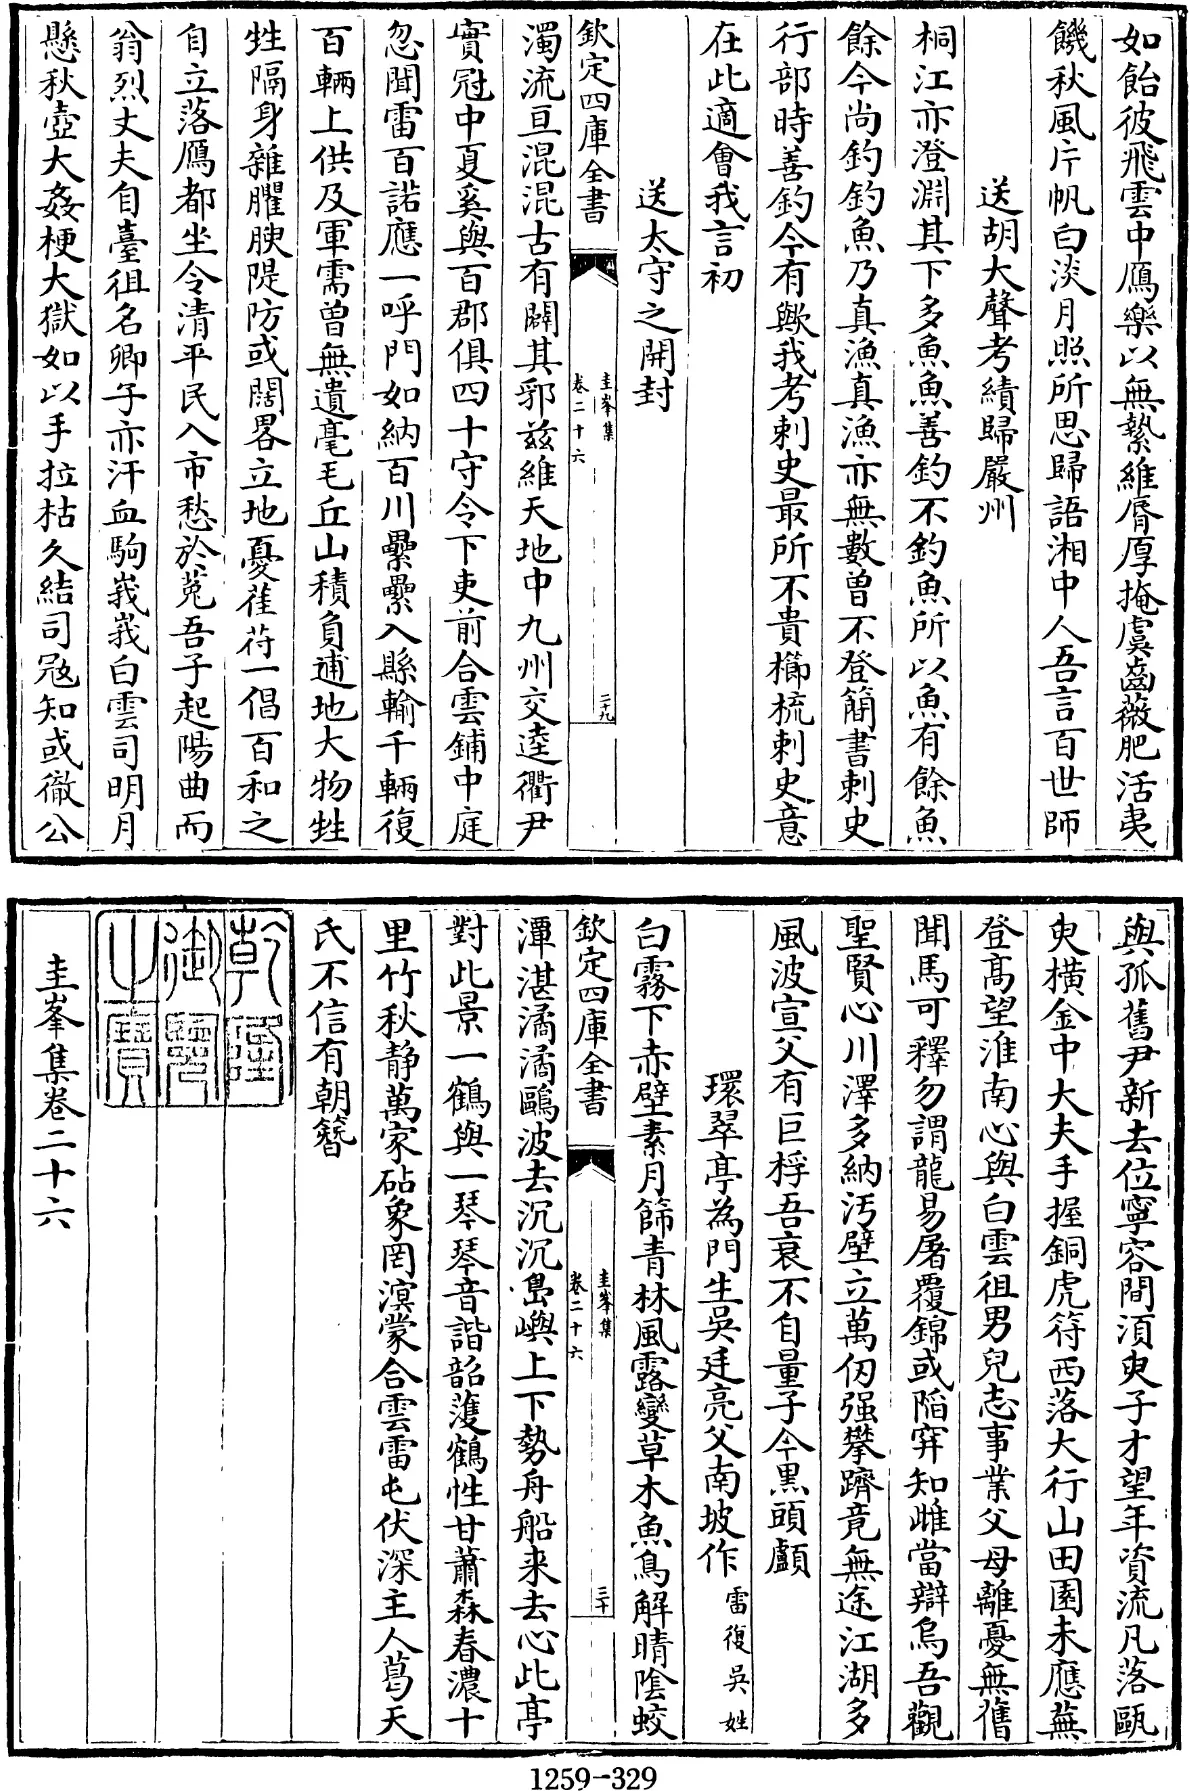 如飴彼飛雲中鴈樂以無縶維脣厚掩虞齒薇肥活夷
饑秋風片帆白淡月照所思歸語湘中人吾言百世師
送胡大聲考績歸嚴州
桐江亦澄淵其下多魚魚善釣不釣魚所以魚有餘魚
餘今尚釣釣魚乃真漁真漁亦無數曾不登簡書刺史
行部時善釣今有歟我考刺史最所不貴櫛梳刺史意
在此適會我言初
送太守之開封
欽定四庫全書
圭峯集
卷二十六
二十九
濁流亘混混古有闢其郛兹維天地中九州交逵衢尹
實冠中夏奚與百郡俱四十守令下吏前合雲鋪中庭
忽聞雷百諾應一呼門如納百川纍纍入縣輸千輛復
百輛上供及軍需曾無遺毫毛丘山積負逋地大物甡
甡隔身雜臞腴隄防或闊畧立地憂萑苻一倡百和之
自立落鴈都坐令清平民入市愁於菟吾子起陽曲而
翁烈丈夫自臺徂名卿子亦汗血駒峩峩白雲司明月
懸秋壺大姦梗大獄如以手拉枯久結司冦知或徹公
與孤舊尹新去位寧容間湏臾子才望年資流凡落甌
臾橫金中大夫手握銅虎符西落大行山田園未應蕪
登高望淮南心與白雲徂男兒志事業父母離憂無舊
聞馬可釋勿謂龍易屠覆錦或陷穽知雌當辯烏吾觀
聖賢心川澤多納汚壁立萬仞强攀躋竟無途江湖多
風波宣父有巨桴吾衰不自量子今黑頭顱
環翠亭為門生吳廷亮父南坡作 雷復吳姓
白霧下赤壁素月篩青林風露變草木魚鳥解晴陰蛟
欽定四庫全書
圭峯集
卷二十六
三十
潭湛潏潏鷗波去沉沉島嶼上下勢舟船来去心此亭
對此景一鶴與一琴琴音諧韶頀鶴性甘蕭森春濃十
里竹秋静萬家砧象罔溟蒙合雲雷屯伏深主人葛天
氏不信有朝簪
乾隆
御覽
之寶
圭峯集卷二十六
1259-329